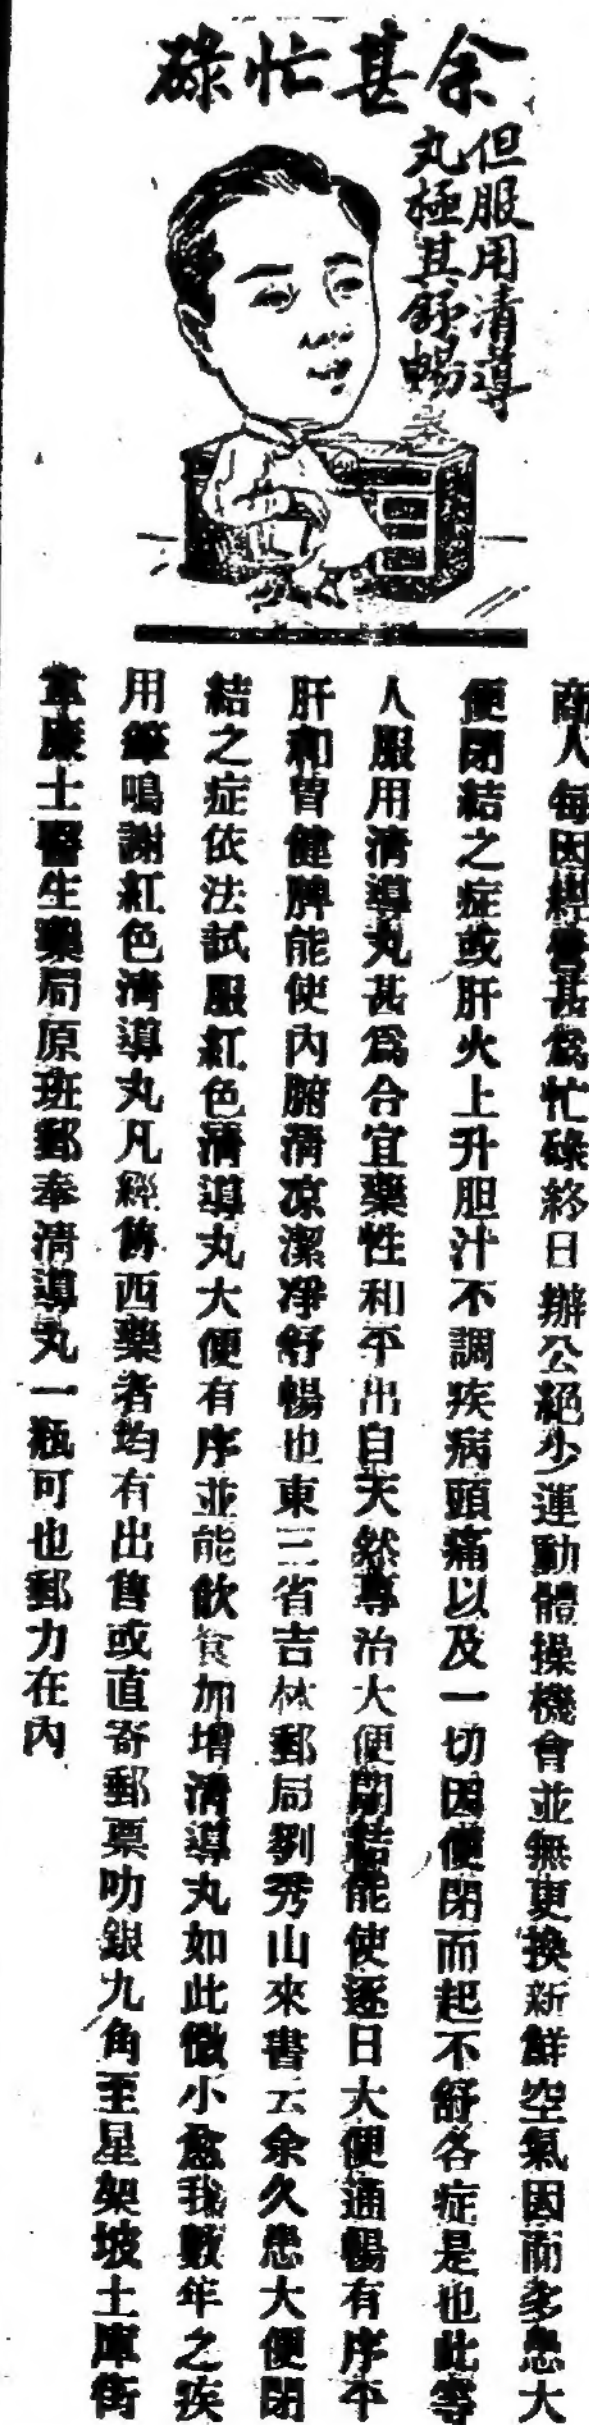 余甚忙碌
但服用清導
丸極其舒暢
商人每因經營甚爲忙碌終日辦公絕少運動體操機會並無更換新鮮空氣因而多患大
便閉結之症或肝火上升胆汁不調疾病頭痛以及一切因便閉而起不舒各症是也此等
人服用清導丸甚爲合宜藥性和平出自天然專治大便閉結能使逐日大便通暢有序平
肝和胃健脾能使內腑清凉潔凈舒暢也東三省吉林郵局劉秀山來書云余久患大便閉
結之症依法試服紅色清導丸大便有序並能飲食加增清導丸如此微小愈我數年之疾
用筆鳴謝紅色清導丸凡經售西藥者均有出售或直寄郵票叻銀九角至星架坡土庫街
韋廉士醫生藥局原班郵奉清導丸一瓶可也郵力在內